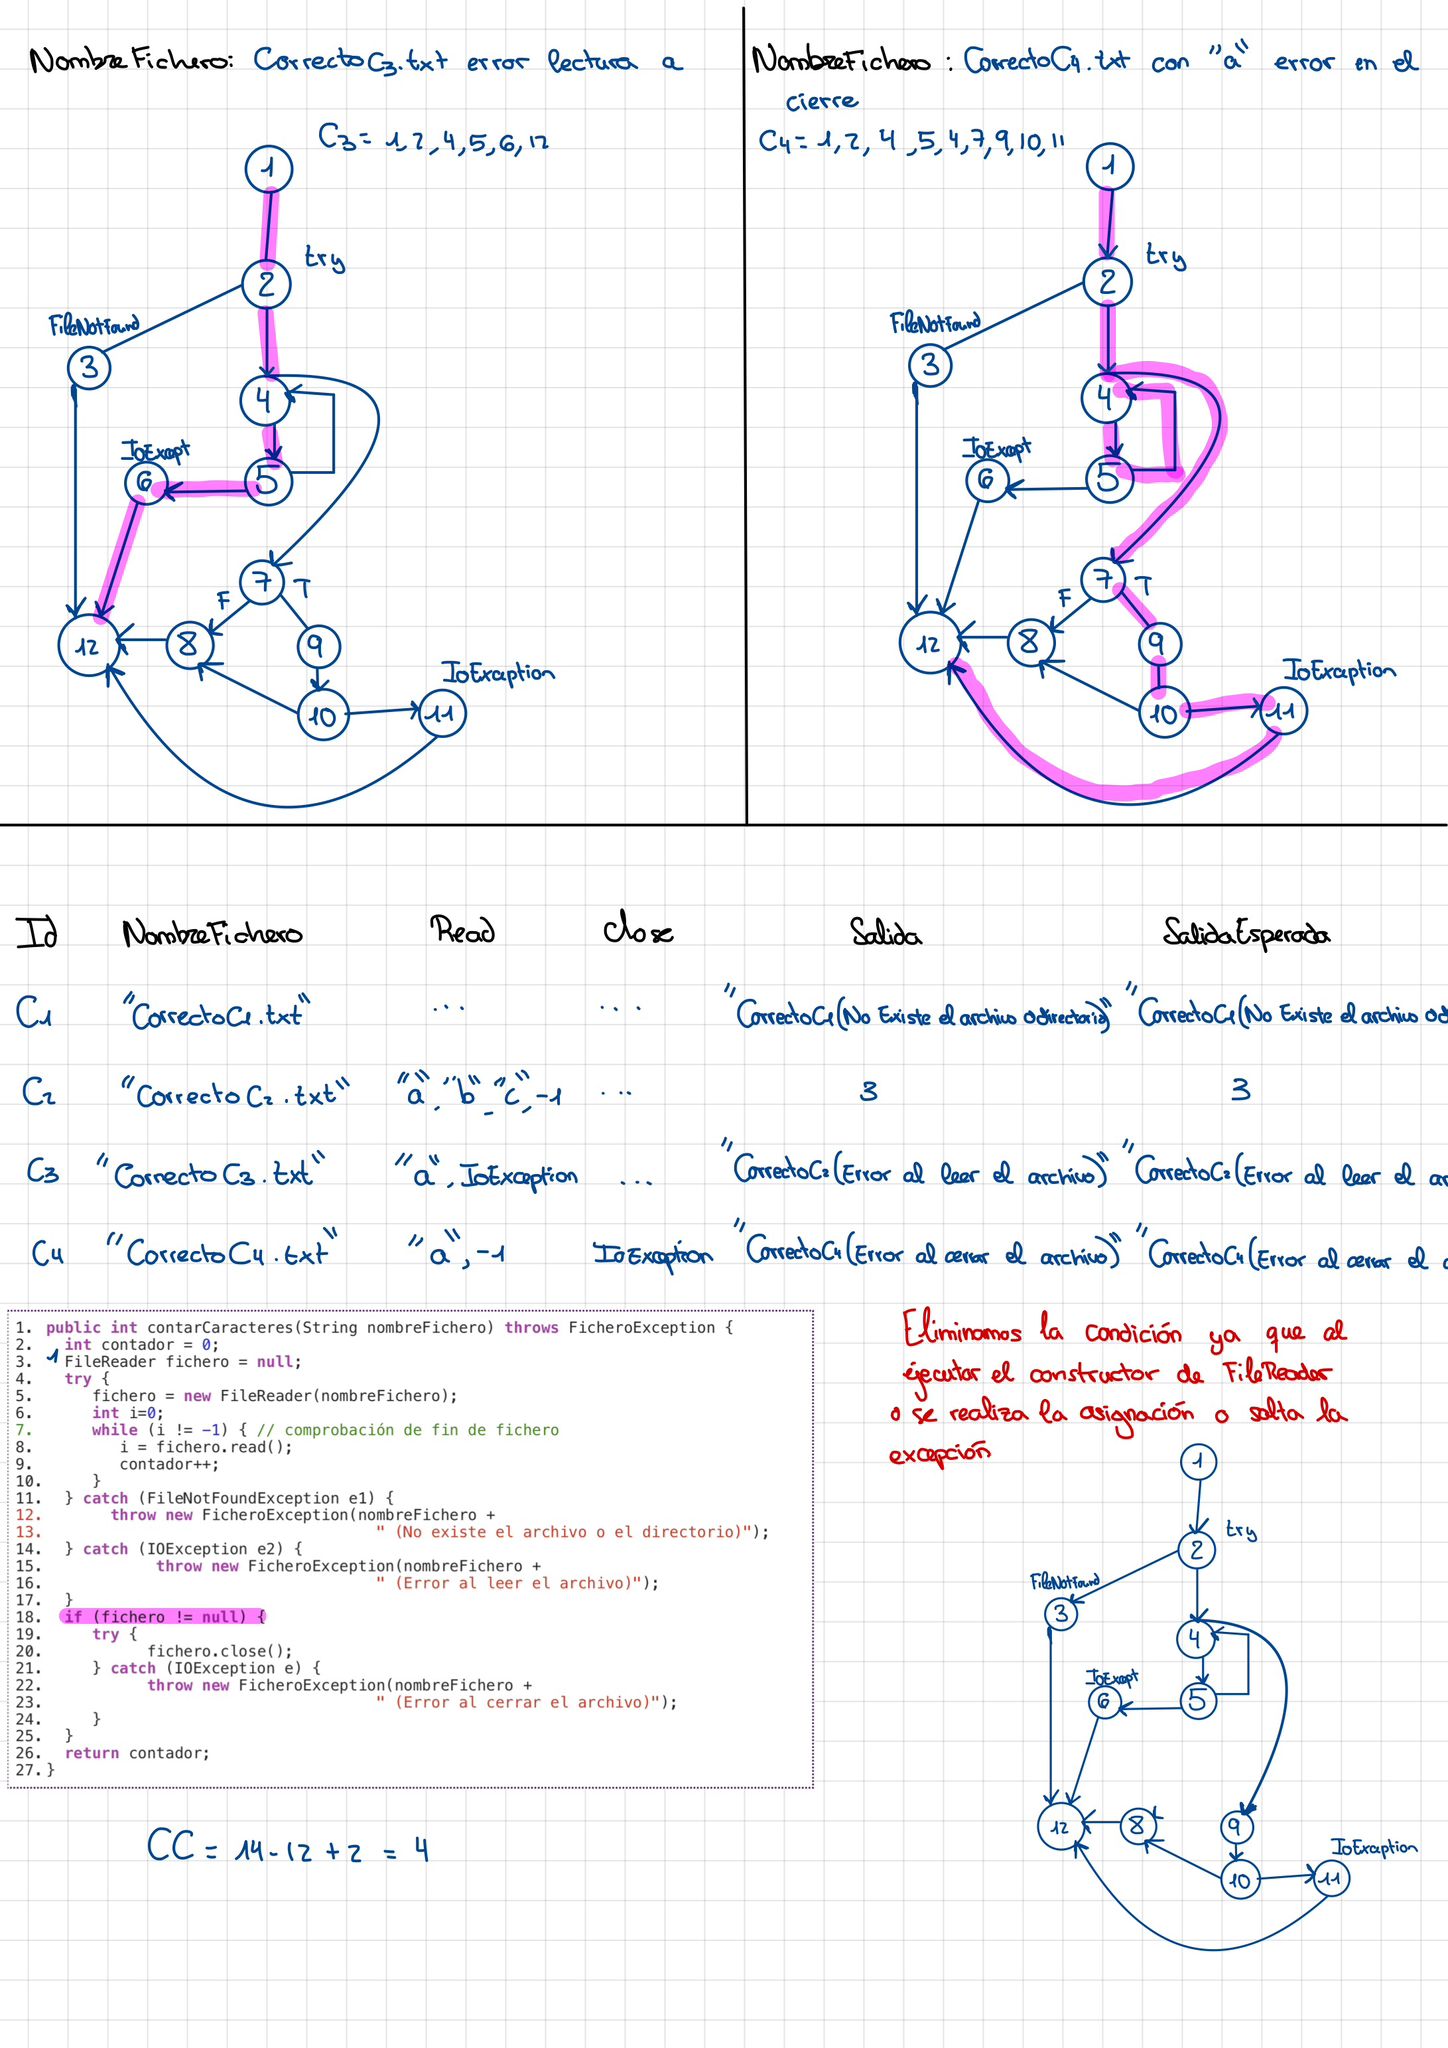 NombreFichero: CorrectoC3.txt error lectura a
C3 = 1,2,4,5,6,12
1
try
2
FileNotFound
3
4
IoExcept
6
5
7
F
T
12
8
9
IoException
10
11
NombreFichero: CorrectoC4.txt con "a" error en el
cierre
C4 = 1,2,4,5,4,7,9,10,11
1
try
2
FileNotFound
3
4
IoExcept
6
5
7
F
T
12
8
9
IoException
10
11
Id NombreFichero Read Close Salida SalidaEsperada
C1 "CorrectoC1.txt" ... ... "CorrectoC1(No Existe el archivo o directorio)" "CorrectoC1(No Existe el archivo od
C2 "CorrectoC2.txt" "a", "b", "c", -1 ... 3 3
C3 "CorrectoC3.txt" "a", IoException ... "CorrectoC2(Error al leer el archivo)" "CorrectoC2(Error al leer el ar
C4 "CorrectoC4.txt" "a", -1 IoException "CorrectoC4(Error al cerrar el archivo)" "CorrectoC4(Error al cerrar el a
1. public int contarCaracteres(String nombreFichero) throws FicheroException {
2. int contador = 0;
3. 1 FileReader fichero = null;
4. try {
5. fichero = new FileReader(nombreFichero);
6. int i=0;
7. while (i != -1) { // comprobación de fin de fichero
8. i = fichero.read();
9. contador++;
10. }
11. } catch (FileNotFoundException e1) {
12. throw new FicheroException(nombreFichero +
13. " (No existe el archivo o el directorio)");
14. } catch (IOException e2) {
15. throw new FicheroException(nombreFichero +
16. " (Error al leer el archivo)");
17. }
18. if (fichero != null) {
19. try {
20. fichero.close();
21. } catch (IOException e) {
22. throw new FicheroException(nombreFichero +
23. " (Error al cerrar el archivo)");
24. }
25. }
26. return contador;
27. }
CC = 14-12+2 = 4
Eliminamos la condición ya que al
ejecutar el constructor de FileReader
o se realiza la asignación o salta la
excepción
1
try
2
FileNotFound
3
4
IoExcept
6
5
12
8
9
IoException
10
11